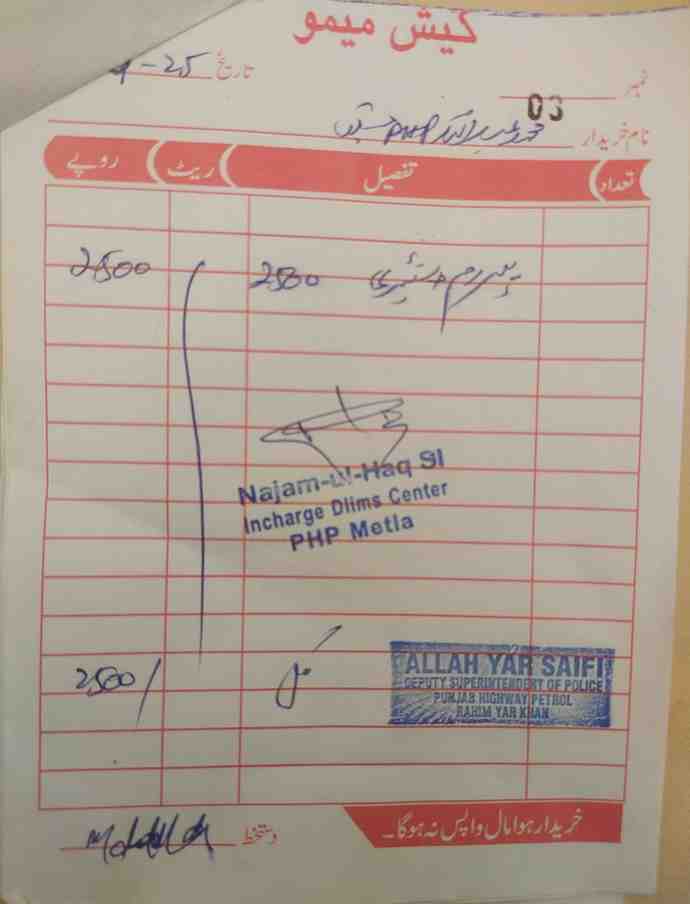 کیش میمو
نمبر 03 تاریخ -25
نام خریدار PHP
تعداد تفصیل ریٹ روپے
2500 2500
Najam-ul-Haq SI
Incharge Dlims Center
PHP Metla
2500/
ALLAH YAR SAIFI
DEPUTY SUPERINTENDENT OF POLICE
PUNJAB HIGHWAY PETROL
RAHIM YAR KHAN
خریدار ہوا مال واپس نہ ہوگا۔
دستخط